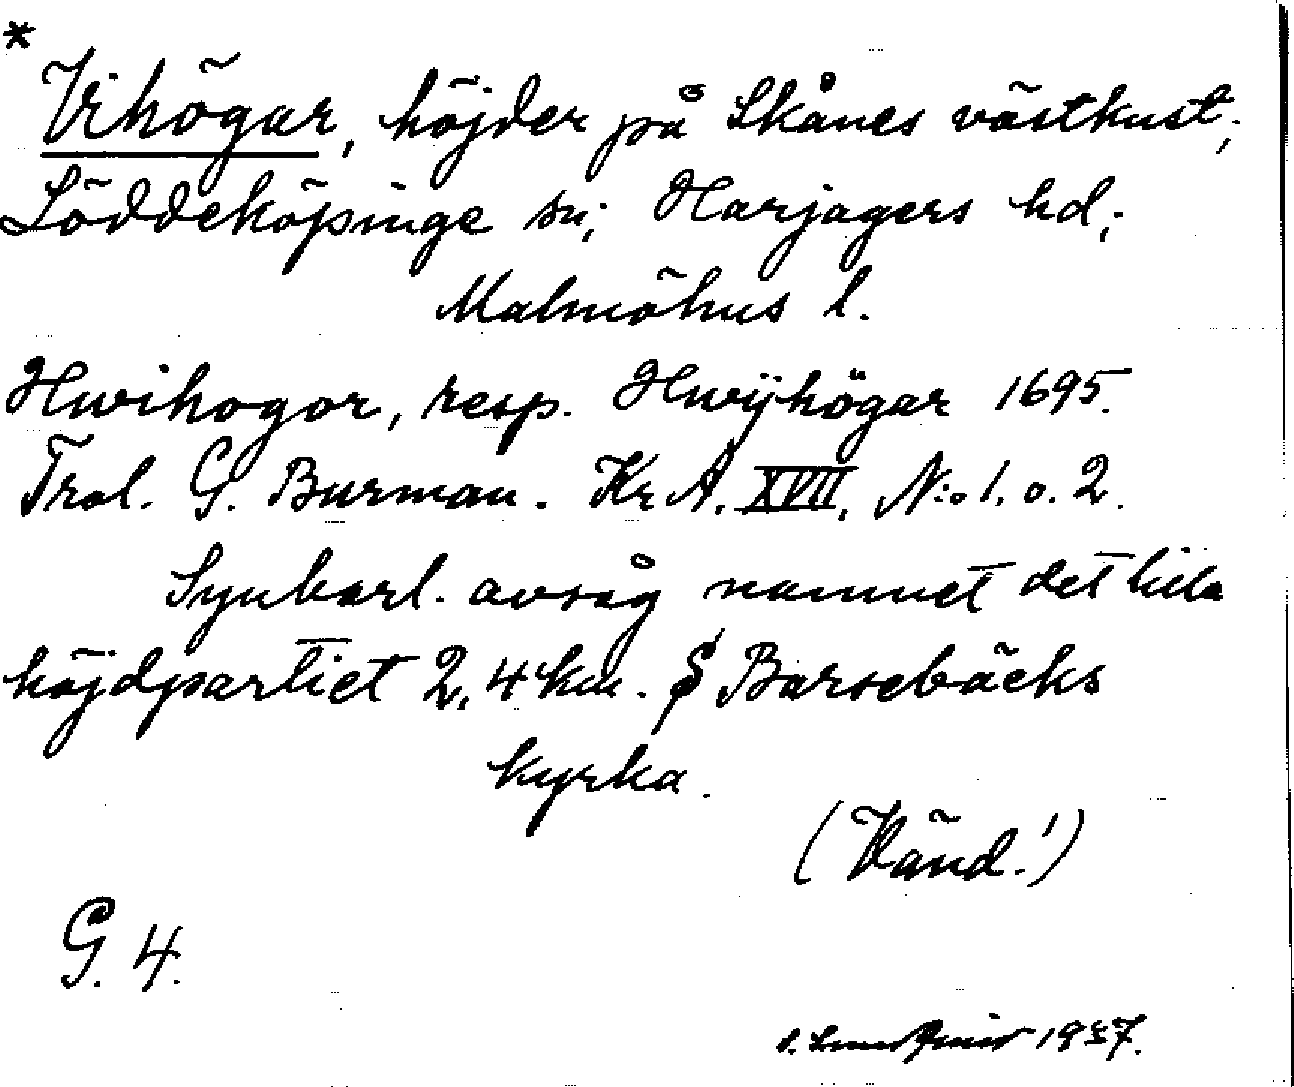 *
Vihögar, höjder på Skånes västkust;
Löddeköpinge sn; Harjagers hd;
Malmöhus l.
Hwihogor, resp. Hwÿhögar 1695.
Trol. G. Burman. Kr A. XVII, N:o 1. o. 2.
Synbarl. avsåg namnet det lilla
höjdpartiet 2,4 km. S Barsebäcks
kyrka.
(Vänd!)
G. 4.
1937.